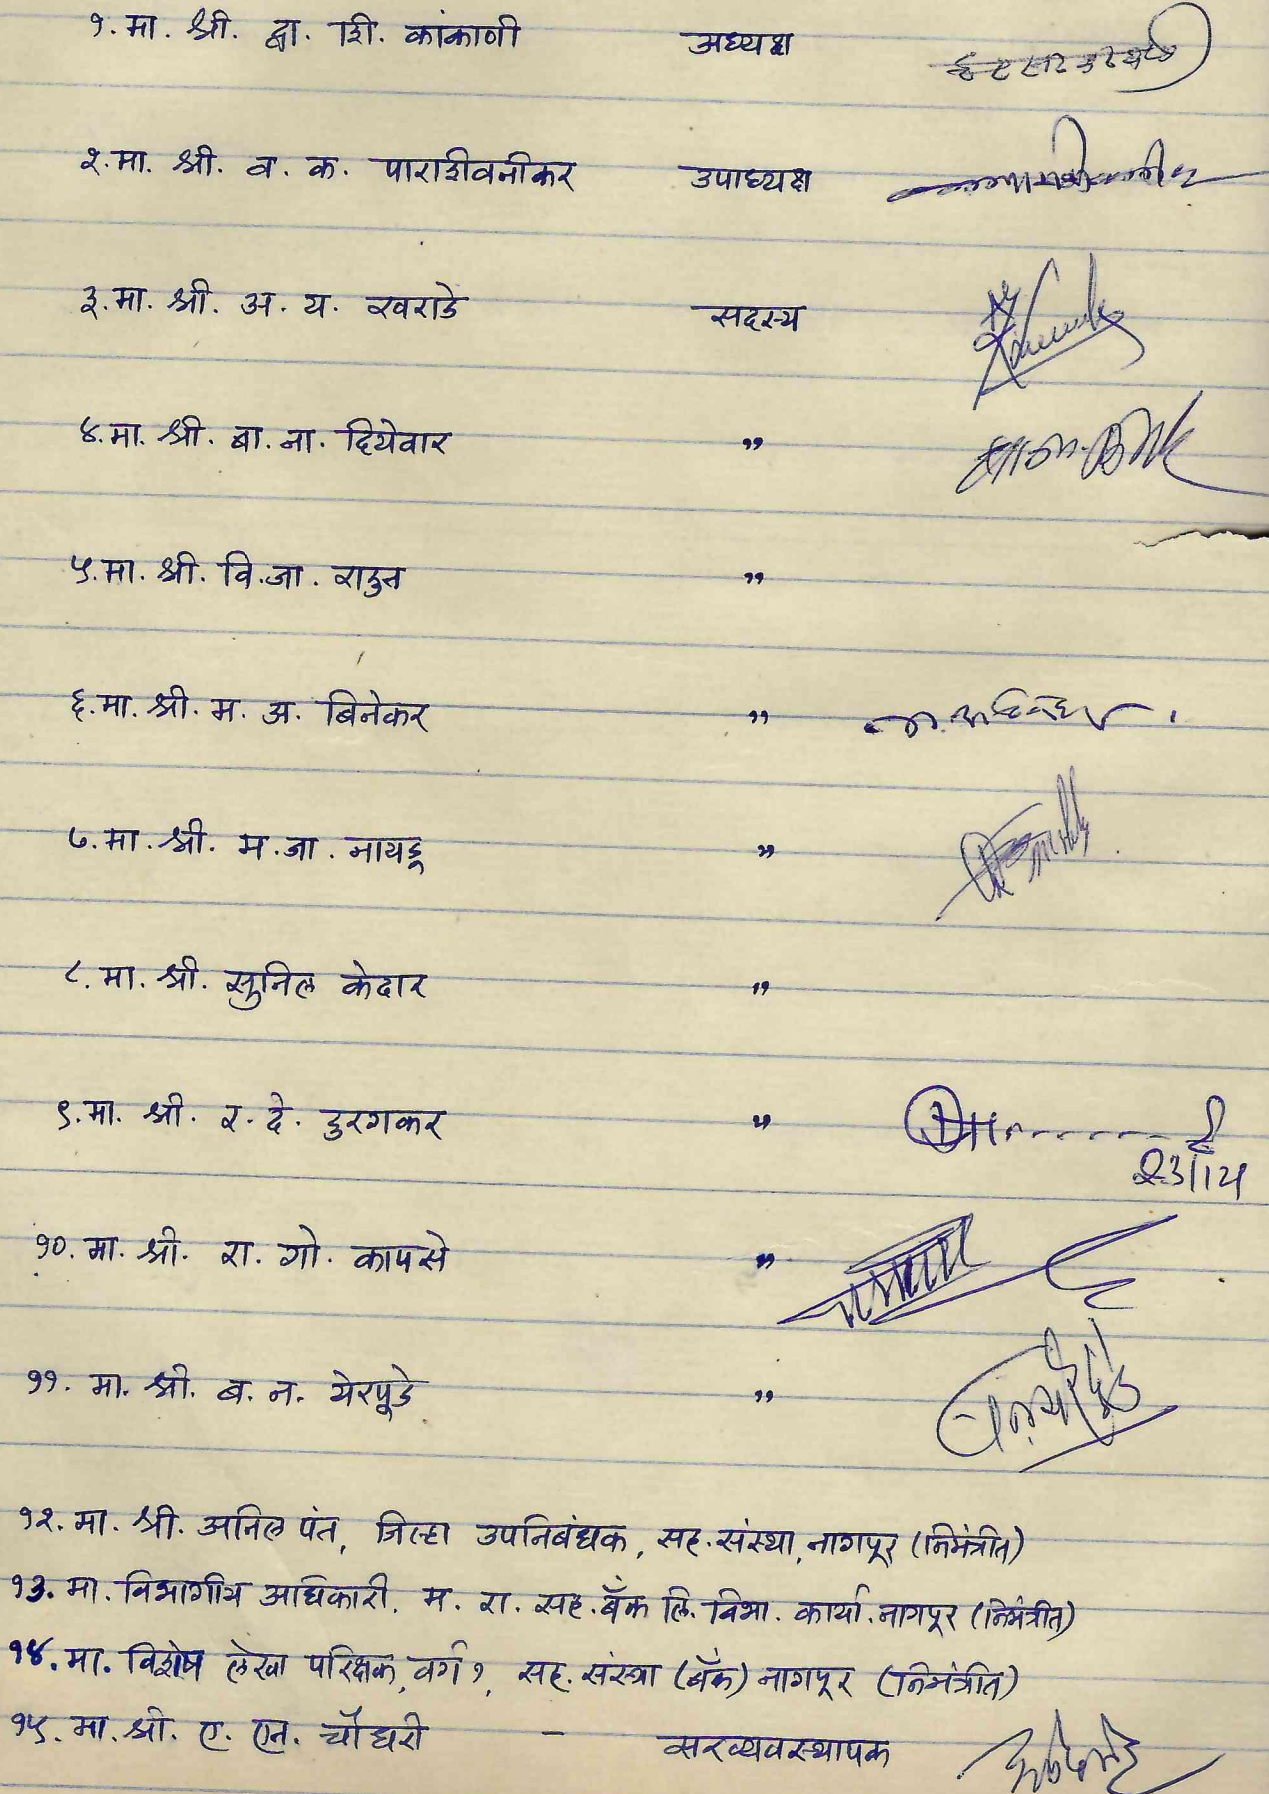 १. मा. श्री. द्वा. शि. कांकाणी अध्यक्ष
२. मा. श्री. व. क. पाराशीवनीकर उपाध्यक्ष
३. मा. श्री. अ. य. खराडे सदस्य
४. मा. श्री. बा. ना. दियेवार ,,
५. मा. श्री. वि. जा. राऊत ,,
६. मा. श्री. म. अ. बिनेकर ,,
७. मा. श्री. म. जा. नायडू ,,
८. मा. श्री. सुनिल केदार ,,
९. मा. श्री. र. दे. दुरगकर ,,
१०. मा. श्री. रा. गो. कापसे ,,
११. मा. श्री. ब. न. येरपूडे ,,
१२. मा. श्री. अनिल पंत, जिल्हा उपनिबंधक, सह. संस्था, नागपूर (निमंत्रीत)
१३. मा. विभागीय अधिकारी. म. रा. सह. बँक लि. विभा. कार्या. नागपूर (निमंत्रीत)
१४. मा. विशेष लेखा परिक्षक, वर्ग १, सह. संस्था (बँक) नागपूर (निमंत्रीत)
१५. मा. श्री. ए. एन. चौधरी - सरव्यवस्थापक